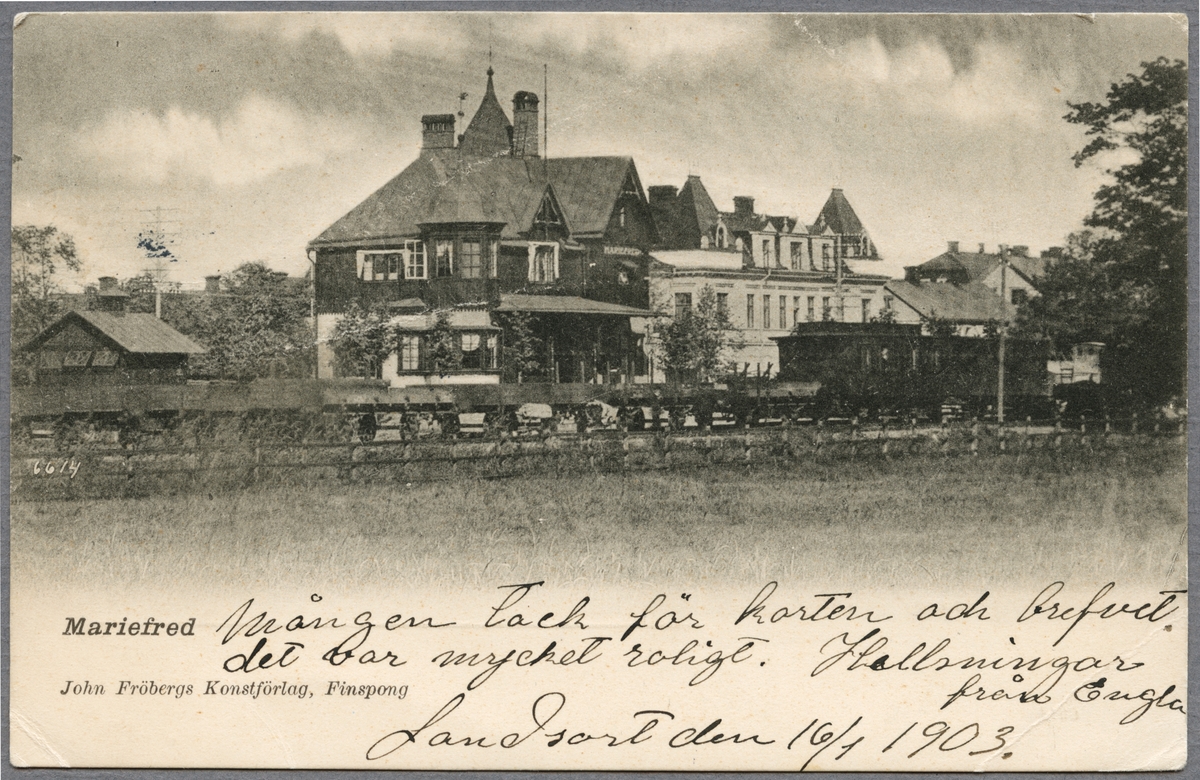 MARIEFRED
6614
Mariefred
Mången tack för korten och brefvet.
det var mycket roligt. Hellsningar
John Fröbergs Konstförlag, Finspong
från Engla
Landsort den 16/1 1903.